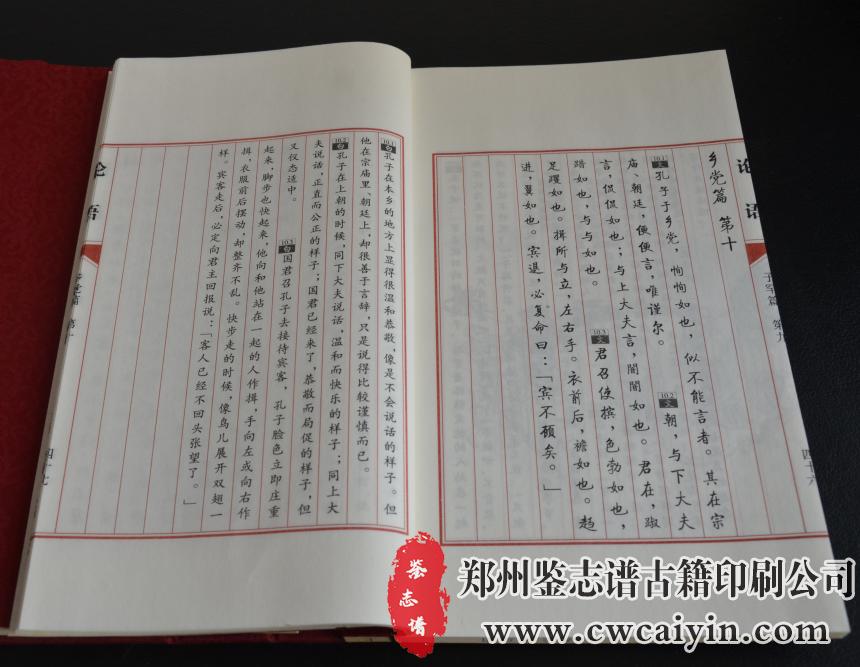 论语
子罕篇 第九
四十六
乡党篇 第十
10.1 文 孔子于乡党，恂恂如也，似不能言者。其在宗
庙、朝廷，便便言，唯谨尔。 10.2 文 朝，与下大夫
言，侃侃如也；与上大夫言，訚訚如也。君在，踧
踖如也，与与如也。 10.3 文 君召使摈，色勃如也，
足躩如也。揖所与立，左右手。衣前后，襜如也。趋
进，翼如也。宾退，必复命曰：「宾不顾矣。」
10.1 句 孔子在本乡的地方上显得很温和恭敬，像是不会说话的样子。但
他在宗庙里、朝廷上，却很善于言辞，只是说得比较谨慎而已。
10.2 句 孔子在上朝的时候，同下大夫说话，温和而快乐的样子；同上大
夫说话，正直而公正的样子；国君已经来了，恭敬而局促的样子，但
又仪态适中。 10.3 句 国君召孔子去接待宾客，孔子脸色立即庄重
起来，脚步也快起来，他向和他站在一起的人作揖，手向左或向右作
揖，衣服前后摆动，却整齐不乱。快步走的时候，像鸟儿展开双翅一
样。宾客走后，必定向君主回报说：「客人已经不回头张望了。」
论语
乡党篇 第十
四十七
鉴志谱
郑州鉴志谱古籍印刷公司
www.cwcaiyin.com